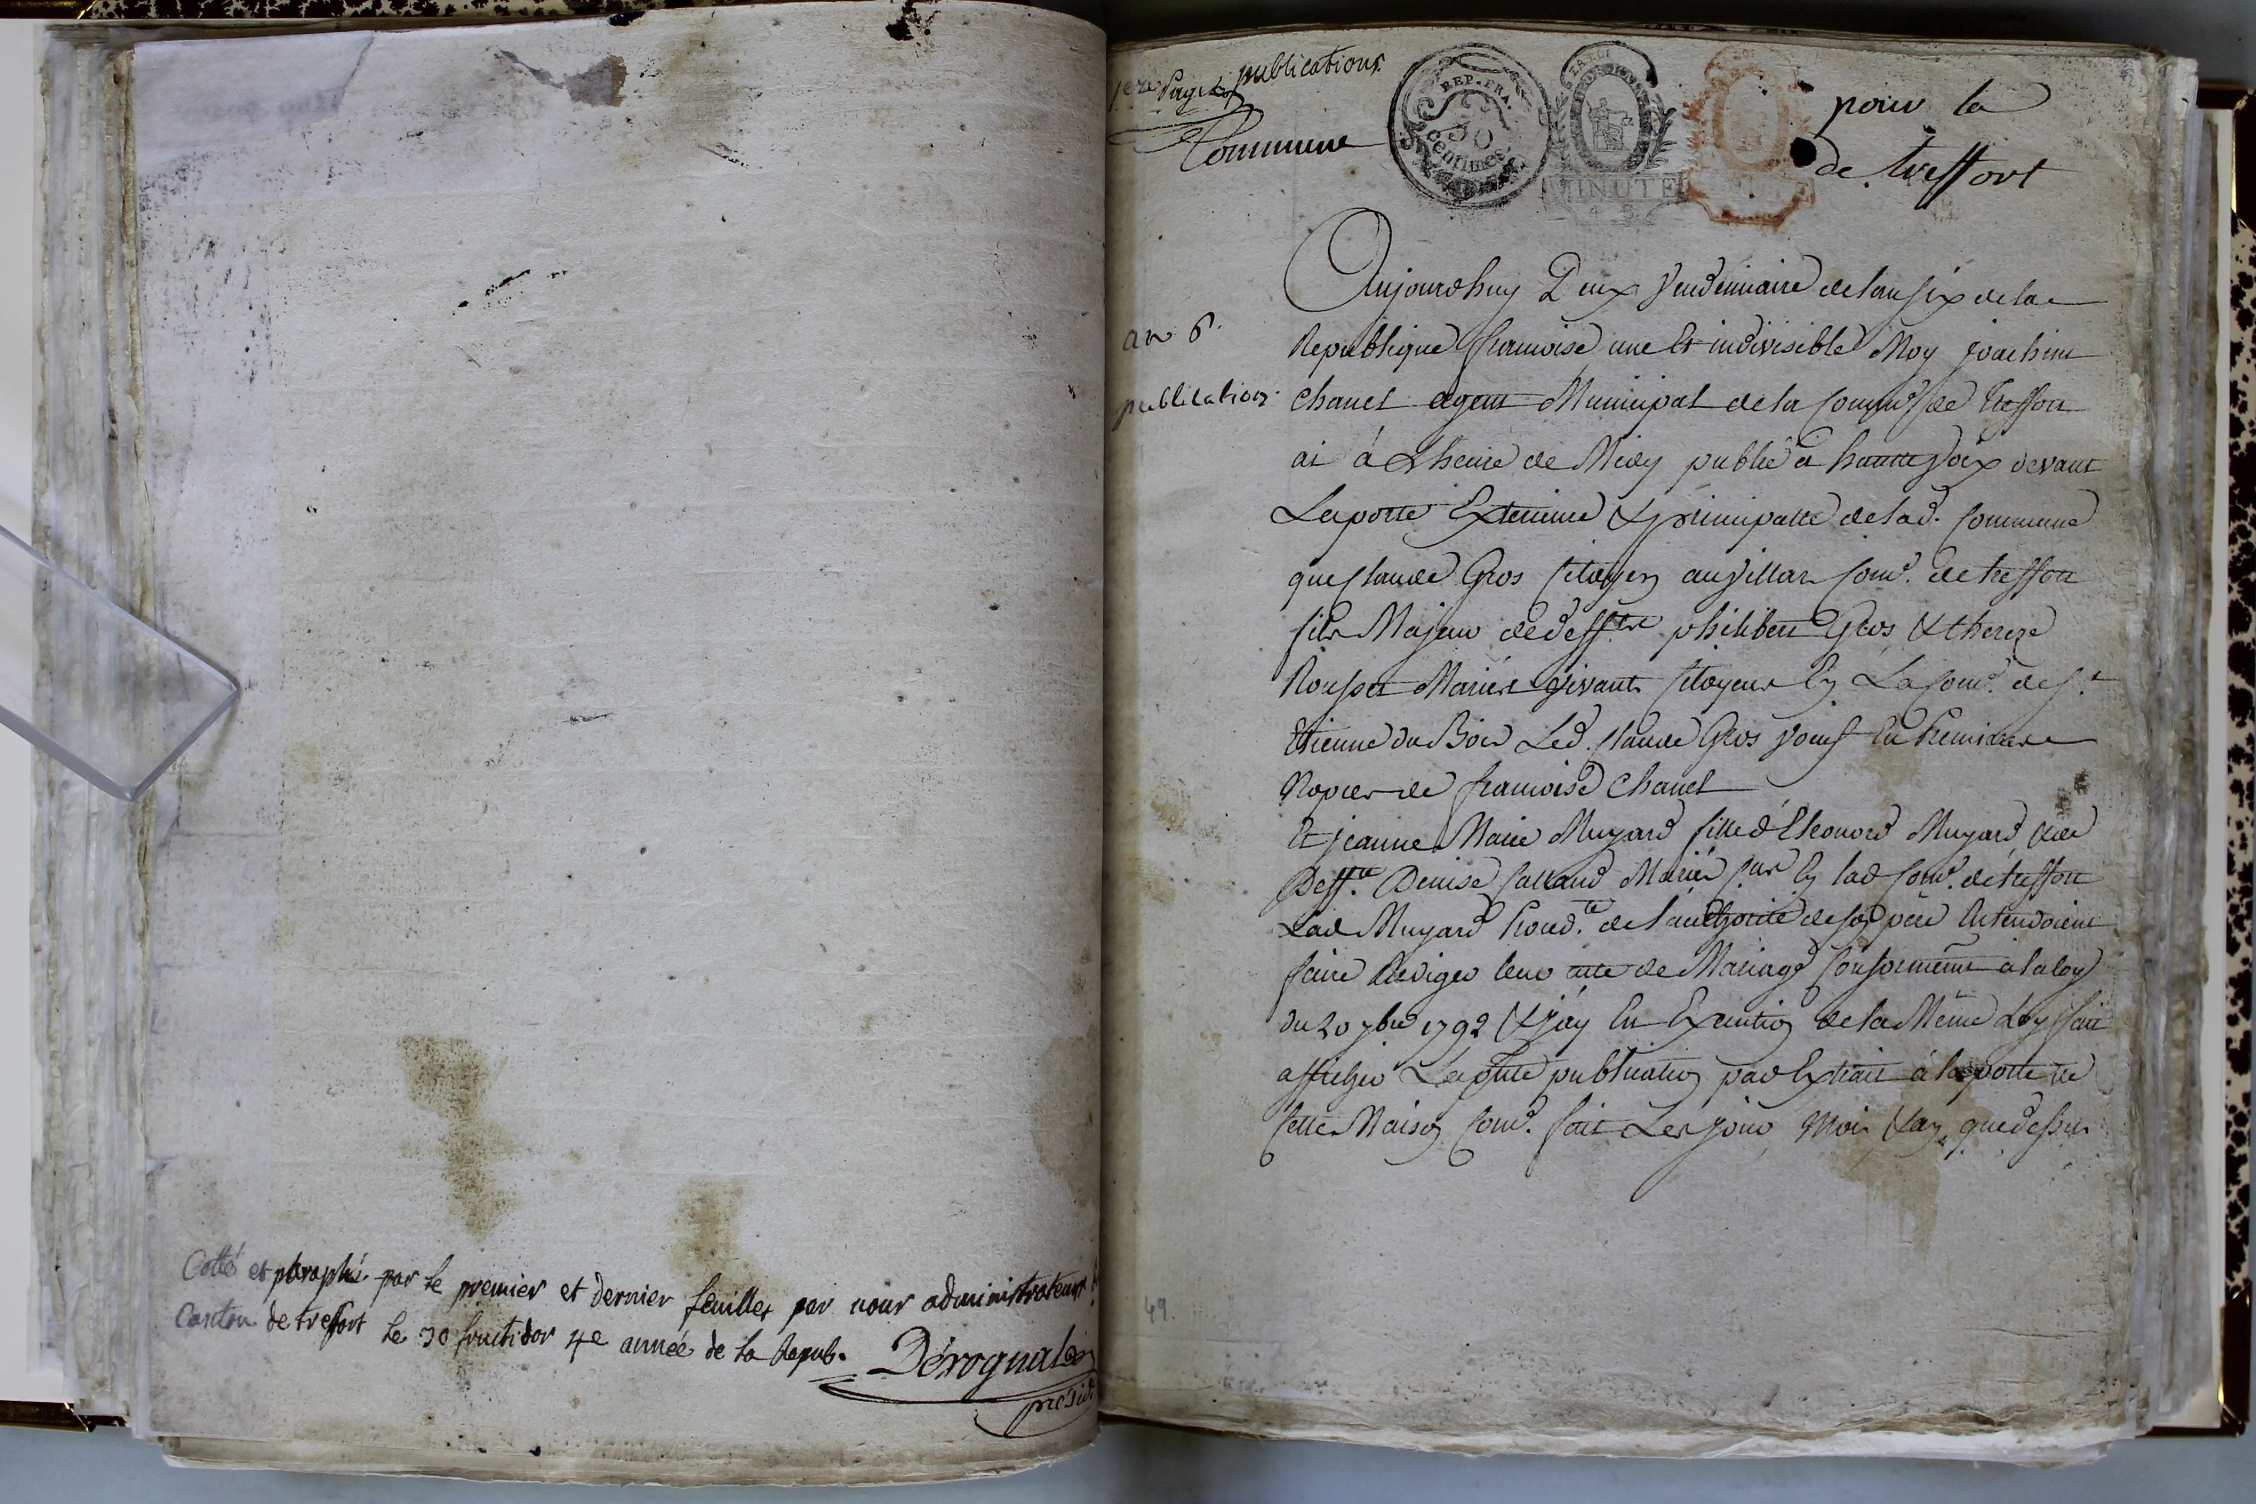 Cotté et paraphé par le premier et dernier feuillet par nous administrateur
Canton de treffort le 30 fructidor 4e année de la Repub.
Dérognat
présid
1ere Page publications pour la
Commune de treffort
REP. FRA.
50
centimes
MINUTE
an 6.
publication.
Aujourdhuy Deux Vendemiaire delan six de la
Republique francoise une Et indivisible Moy joachim
Chanel agent Municipal de la Comm.e de treffort
ai à Lheure de Midy publié à hautte Voix devant
La porte Exterieure & principalle de lad. Commune
que Claude Gros Citoyen au Villar Com.e de treffort
fils Majeur de deff.t philibert Gros & thereze
Rousset Mariés Vivants Citoyens En La Com.e de S.t
Etienne du Bois Led. Claude Gros Veuf En Premieres
Nopces de francoise Chanel
Et jeanne Marie Muyard fille d'Eleonord Muyard & de
Deff.te Denise Mariés En lad Com.e de treffort
Lad Muyard Proced.te de l'authorité de son père Entendoient
faire Rediger leur acte de Mariage Conformément à la loy
du 20 7bre 1792 & jäy En Execution de la Même Loy fait
afficher La p.nte publication par Extrait à la porte de
Cette Maison Com.e fait Les jour Mois & an que dessus
49.